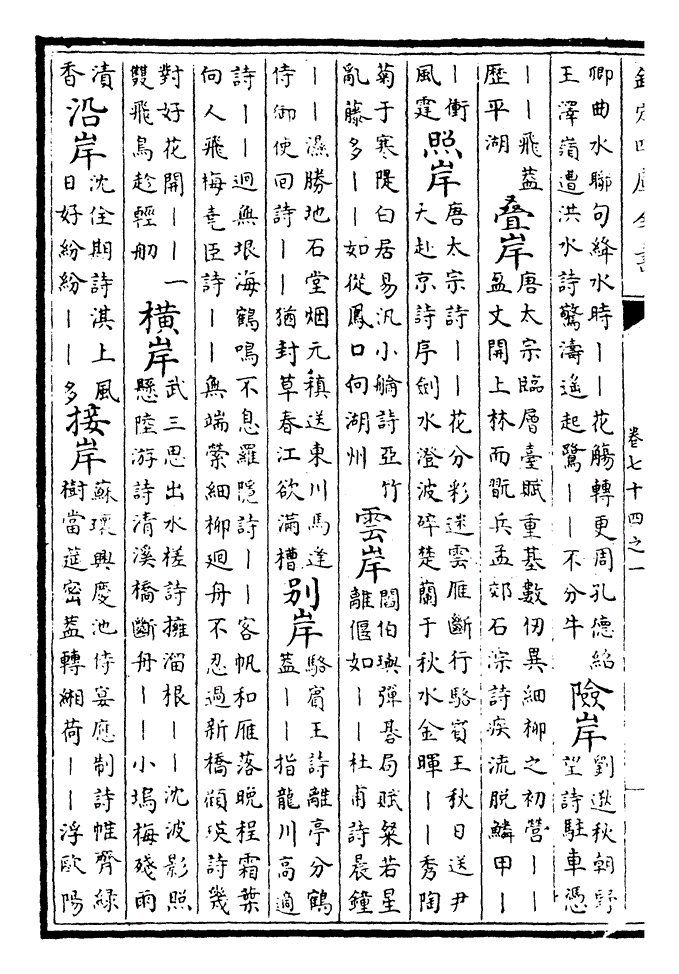 欽定四庫全書
卷七十四之一
卿曲水聯句絳水時丨丨花觴轉更周孔德紹
王澤嶺遭洪水詩驚濤遙起鷺丨丨不分牛
險岸
劉遜秋朝野
望詩駐車憑
丨丨飛蓋
歷平湖
叠岸
唐太宗臨層臺賦重基數仞異細柳之初營丨丨
盈丈開上林而翫兵孟郊石淙詩疾流脫鱗甲丨
丨衝
風霆
照岸
唐太宗詩丨丨花分彩迷雲雁斷行駱賓王秋日送尹
大赴京詩序劍水澄波碎楚蘭于秋水金暉丨丨秀陶
菊于寒隄白居易汎小䑳詩亞竹
亂藤多丨丨如從鳳口向湖州
雲岸
閻伯璵彈棊局賦粲若星
離偃如丨丨杜甫詩晨鐘
丨丨濕勝地石堂烟元稹送東川馬逢
侍御使回詩丨丨猶封草春江欲滿槽
别岸
駱賓王詩離亭分鶴
蓋丨丨指龍川高適
詩丨丨迥無垠海鶴鳴不息羅隱詩丨丨客帆和雁落晚程霜葉
向人飛梅堯臣詩丨丨無端縈細柳廻舟不忍過新橋顧瑛詩幾
對好花開丨丨一
雙飛鳥趁輕舠
橫岸
武三思出水槎詩擁溜根丨丨沈波影照
懸陸游詩清溪橋斷舟丨丨小塢梅殘雨
漬
香
沿岸
沈佺期詩淇上風
日好紛紛丨丨多
接岸
蘇瓌興慶池侍宴應制詩帷齊綠
樹當筵密蓋轉緗荷丨丨浮歐陽